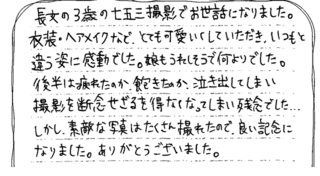 長女の3歳の七五三撮影でお世話になりました。
衣装・ヘアメイクなど、とても可愛くしていただき、いつもと
違う姿に感動でした。娘もうれしそうで何よりでした。
後半は疲れたのか、飽きたのか、泣き出してしまい
撮影を断念せざるを得なくなってしまい残念でした…
しかし、素敵な写真はたくさん撮れたので、良い記念に
なりました。ありがとうございました。